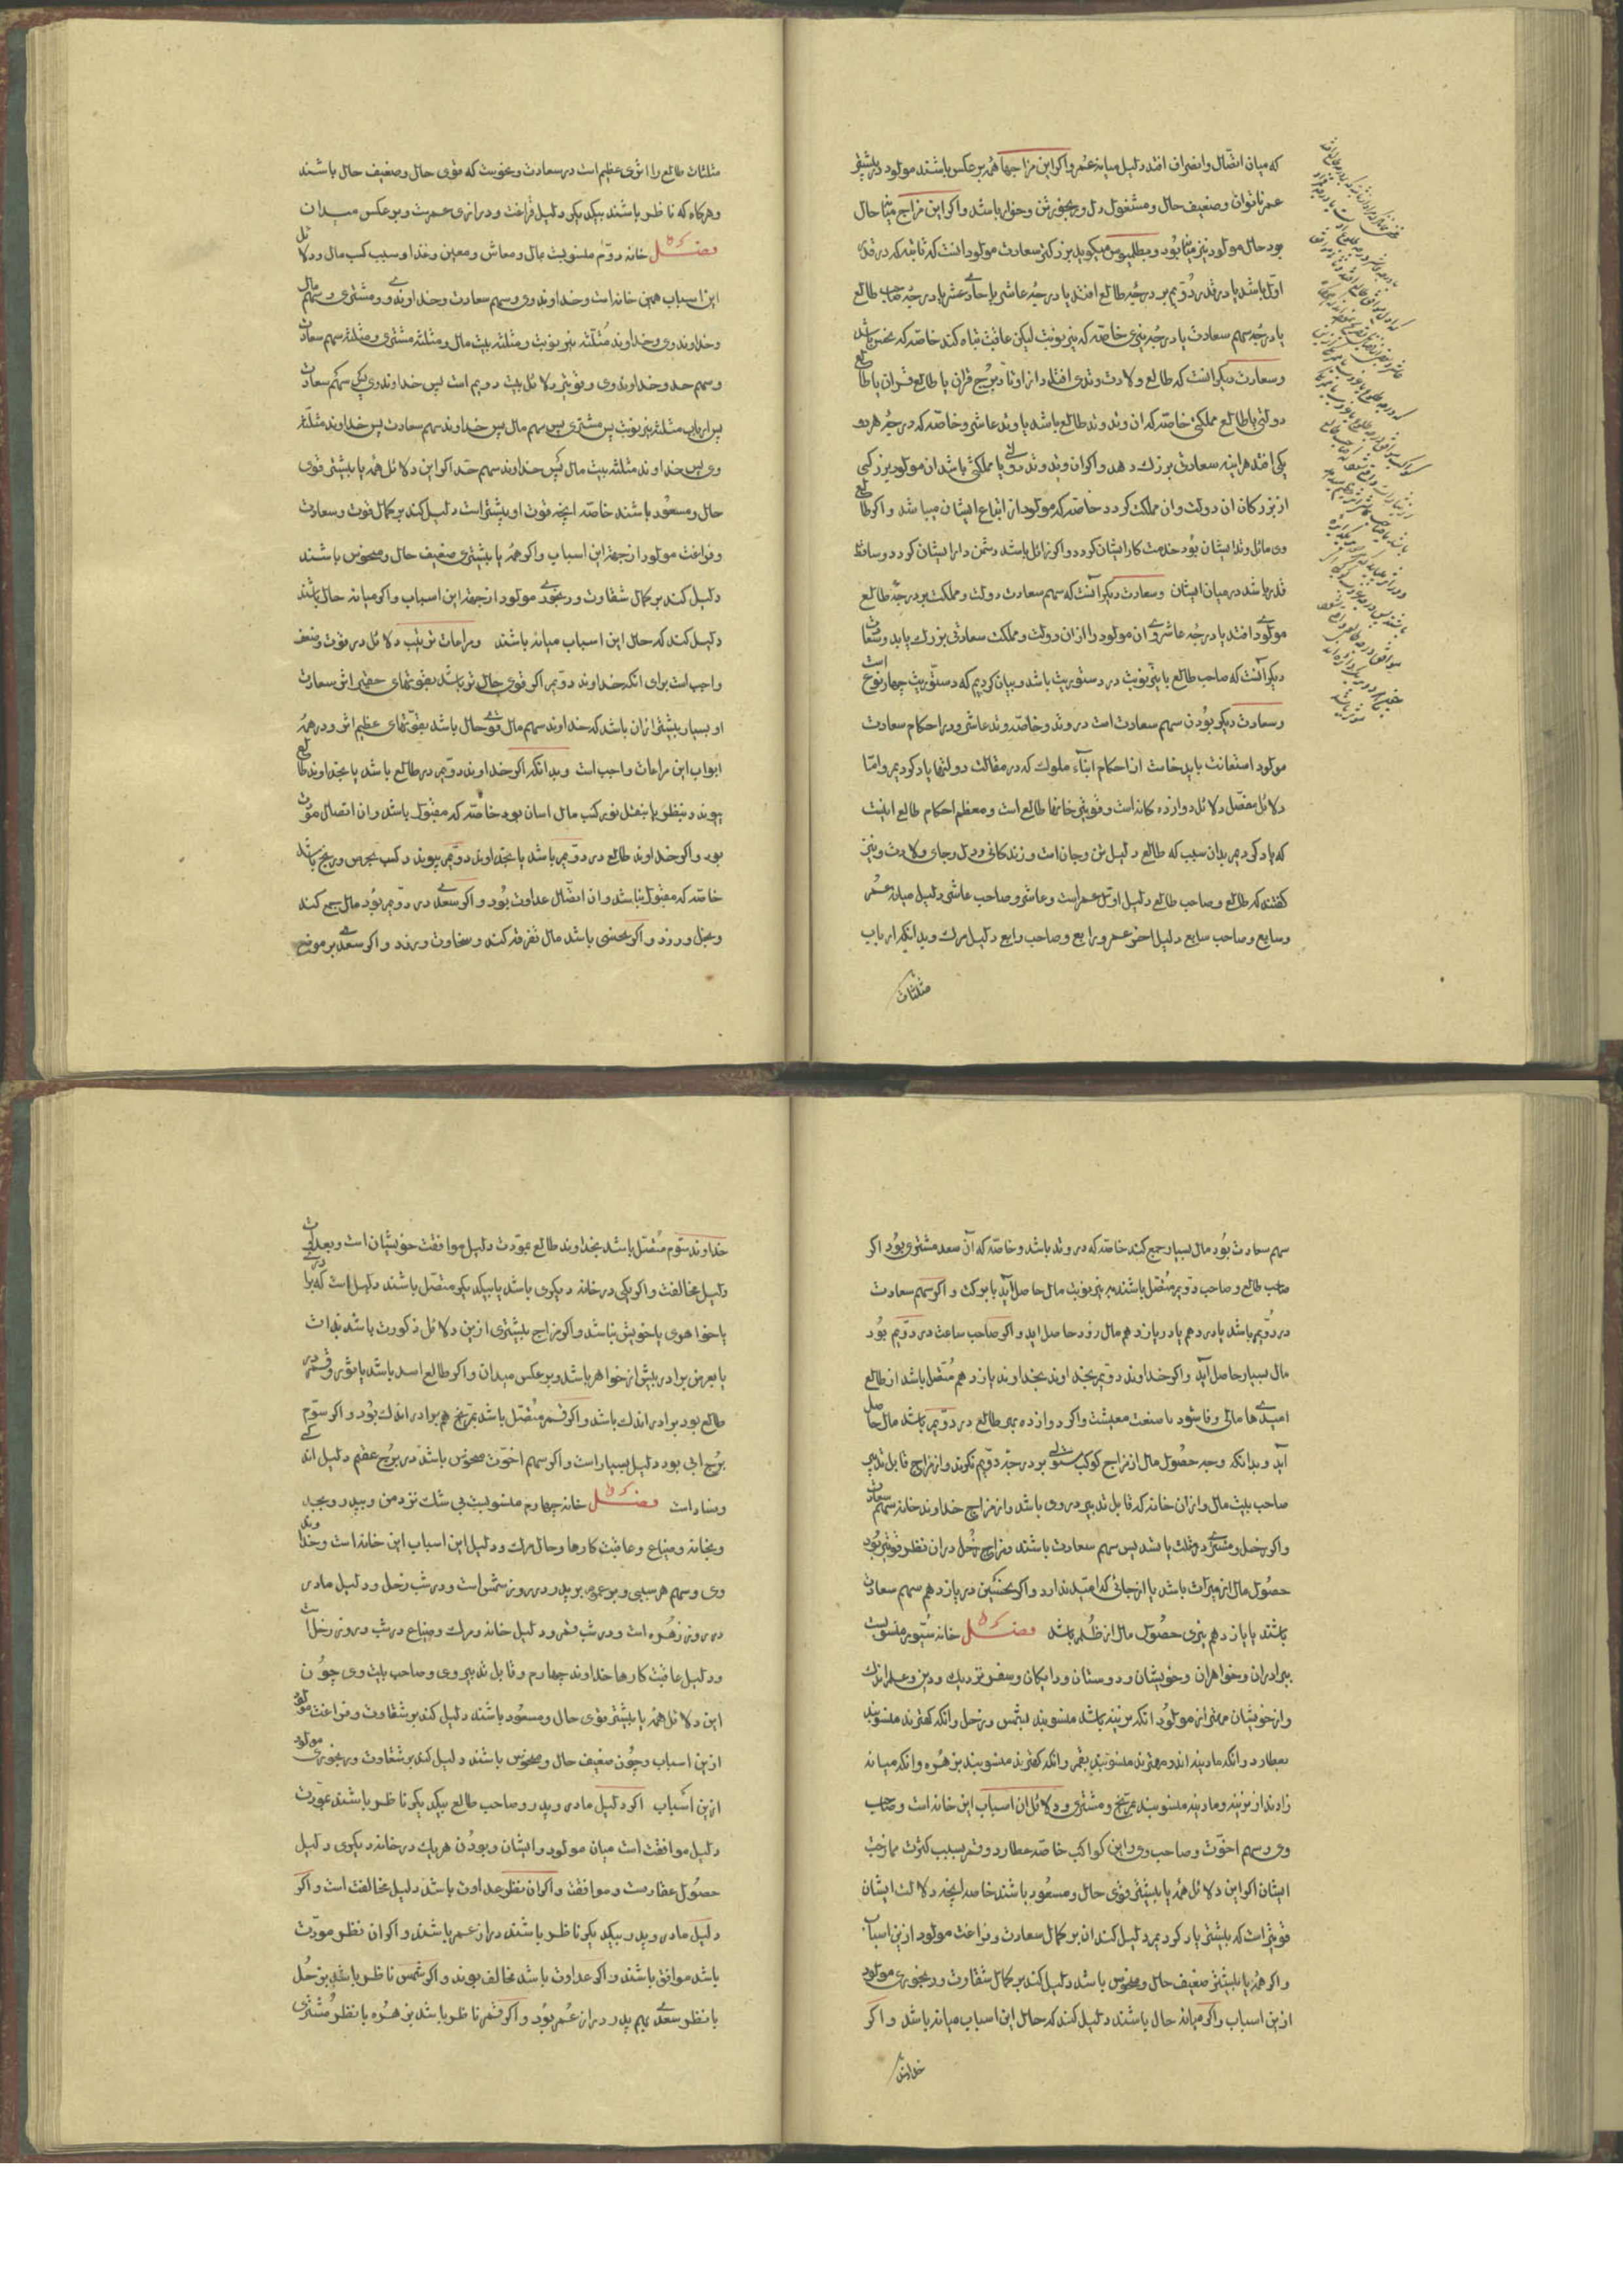 که میان اتصال وانصراف افتد دلیل میانه عمر واکر این مزاجها همه بر عکس باشند مولود در بیشتر
عمر ناتوان وضعیف حال ومشغول دل ورنجور تن وخوار باشد واکر این مزاج میانه حال
بود حال مولود نیز میانه بود وبطلمیوس میکوید بزرکترین سعادت مولود انست که ثابته که در قدر
اول باشد یا در قدر دویم بر درجه طالع افتد یا درجه عاشر یا حادی عشر یا درجه صاحب طالع
یا درجه سهم سعادت یا درجه نیری خاصه که نیر نوبت لیکن عاقبت تباه کند خاصه که نحس باشد
وسعادت دیکر انست که طالع ولادت وتدی افتد از اوتاد برج قران یا طالع قران یا طالع
دولتی یا طالع مملکتی خاصه که ان وتد وتد طالع باشد یا وتد عاشر وخاصه که درجه هر دو
یکی افتد هراینه سعادتی بزرک دهد واکر ان وتد وتد دولتی یا مملکتی باشد ان مولود بزرکی
از بزرکان ان دولت وان مملکت کردد خاصه که مولود از اتباع ایشان میباشد واکر طالع
وی مائل وتد ایشان بود خدمت کار ایشان کردد واکر زائل باشد دشمن دار ایشان کردد وساقط
قدر باشد در میان ایشان وسعادت دیکر آنست که سهم سعادت دولت ومملکت بر درجه طالع
مولود افتد یا درجه عاشر وی ان مولود را از ان دولت ومملکت سعادتی بزرک یابد وسعادت
دیکر آنست که صاحب طالع یا نیر نوبت در دستوریت باشد وبیان کردیم که دستوریت چهار نوع است
وسعادت دیکر بودن سهم سعادت است در وتد وخاصه وتد عاشر ودر احکام سعادت
مولود استعانت باید خاست از احکام ابناء ملوک که در مقالت دولتها یاد کردیم واما
دلائل مفصل دلائل دوازده کانه است وقویترین خانها طالع است ومعظم احکام طالع اینست
که یاد کردیم بدان سبب که طالع دلیل تن وجان است وزندکانی ودل وجای ولادت ونیز
کفتند که طالع وصاحب طالع دلیل اول عمر است وعاشر وصاحب عاشر دلیل میانه عمر
وسابع وصاحب سابع دلیل اخر عمر ورابع وصاحب رابع دلیل مرک وبدانکه ارباب
مثلثات
مثلثات طالع را اثری عظیم است در سعادت ونحوست که قوی حال وضعیف حال باشند
وهرکاه که ناظر باشند بیکدیکر دلیل فراغت ودرازی عمرست وبر عکس میدان
فصل خانه دوم منسوبست بمال ومعاش ومعین وغذا وسبب کسب مال ودلائل
این اسباب همین خانه است وخداوند وی وسهم سعادت وخداوند وی ومشتری وسهم مال
وخداوند وی وخداوند مثلثه نیر نوبت ومثلثه بیت مال ومثلثه مشتری ومثلثه سهم سعادت
وسهم حد وخداوند وی وقویترین دلائل بیت دویم است پس خداوند وی پس سهم سعادت
پس ارباب مثلثه نیر نوبت پس مشتری پس سهم مال پس خداوند سهم سعادت پس خداوند مثلثه
وی پس خداوند مثلثه بیت مال پس خداوند سهم حد اکر این دلائل همه یا بیشتر قوی
حال ومسعود باشند خاصه انچه قوت او بیشتر است دلیل کند بر کمال قوت وسعادت
وفراغت مولود از جهة این اسباب واکر همه یا بیشتری ضعیف حال ومنحوس باشند
دلیل کند بر کمال شقاوت ورنجوری مولود از جهة این اسباب واکر میانه حال باشند
دلیل کند که حال این اسباب میانه باشند ومراعات ترتیب دلائل در قوت وضعف
واجب است برای انکه خداوند دویم اکر قوی حال تر باشد بقوتهای حقیر اثر سعادت
او بسیار بیشتر ازان باشد که خداوند سهم مال قوی حال باشد بقوتهای عظیم اثر ودر همه
ابواب این مراعات واجب است وبدانکه اکر خداوند دویم در طالع باشد یا بخداوند طالع
پیوندد بنظر یا بنقل نور کسب مال اسان بود خاصه که مقبول باشد وان اتصال مودت
بود واکر خداوند طالع در دویم باشد یا بخداوند دویم پیوندد کسب بحرص ورنج باشد
خاصه که مقبول نباشد وان اتصال عداوت بود واکر سعدی در دویم بود مال جمع کند
وبخل ورزد واکر نحسی باشد مال تفرقه کند وسخاوت ورزد واکر سعدی بر موضع
سهم سعادت بود مال بسیار جمع کند خاصه که در وتد باشد وخاصه که آن سعد مشتری بود اکر
صاحب طالع وصاحب دویم متصل باشند بر نیر نوبت مال حاصل آید با بوکت واکر سهم سعادت
در دویم باشد یا در دهم یا در یازدهم مال زود حاصل اید واکر صاحب ساعت در دویم بود
مال بسیار حاصل آید واکر خداوند دویم بخداوند بخداوند یازدهم متصل باشد از طالع
امیدها مالی وفا شود با صنعت معیشت واکر دوازدهم طالع در دویم باشد مال حاصل
آید وبدانکه وجه حصول مال از مزاج کوکب مستولی بود درجه دویم نکوند واز مزاج قابل تدبیر
صاحب بیت مال وازان خانه که قابل تدبیر در وی باشد واز مزاج خداوند خانه سهم سعادت
واکر زحل ومشتری در مثلث باشد پس سهم سعادت باشند ومزاج زحل دران نظر قویتر بود
حصول مال از میراث باشد یا از جائی که امید ندارد واکر نحسین در یازدهم سهم سعادت
باشند یا یازدهم نیری حصول مال از ظلم باشد فصل خانه سیوم منسوبست
ببرادران وخواهران وخویشان ودوستان ودایکان وسفر نزدیک ودین وعلم اندک
واز خویشان مهتر از مولود انکه نرینه باشد منسوبند بشمس وزحل وانکه کهترند منسوبند
بعطارد وانکه مادینه اند ومهترند منسوبند بقمر وانکه کهترند منسوبند بزهره وانکه میانه
زادند از نرینه ومادینه منسوبند بمریخ ومشتری ودلائل ان اسباب این خانه است وصاحب
وی وسهم اخوت وصاحب وی واین کواکب خاصه عطارد وقمر بسبب کثرت ممازجت
ایشان اکر این دلائل همه یا بیشتر قوی حال ومسعود باشند خاصه انچه دلالت ایشان
قویتر است که بیشتر یاد کردیم دلیل کند ان بر کمال سعادت وفراغت مولود ازین اسباب
واکر همه یا بیشتر ضعیف حال ومنحوس باشد دلیل کند بر کمال شقاوت ورنجوری مولود
ازین اسباب واکر میانه حال باشند دلیل کند که حال این اسباب میانه باشد واکر
خداوند
خداوند سوم متصل باشد بخداوند طالع بمودت دلیل موافقت خویشان است وبعداوت
دلیل مخالفت واکر یکی در خانه دیکری باشد یا بیکدیکر متصل باشند دلیل است که برادری
یا خواهری یا خویش نباشد واکر مزاج بیشتری ازین دلائل ذکورت باشد بذات
یا بعرض برادر بیش از خواهر باشد وبر عکس میدان واکر طالع اسد باشد یا ثور وقمر در
طالع بود برادر اندک باشد واکر قمر متصل باشد بمریخ هم برادر اندک بود واکر سوم
برج آبی بود دلیل بسیار است واکر سهم اخوت منحوس باشد در برج عقیم دلیل اندکی
وفساد است فصل خانه چهارم منسوبست بی شک نزد من وبپدر وبجد
وبخانه وضیاع وعاقبت کارها وحال مرک ودلیل این اسباب این خانه است وخداوند
وی وسهم هر سببی وبر عموم بر پدر در روز شمس است ودر شب زحل ودلیل مادر
در روز زهره است ودر شب قمر ودلیل خانه ومرک وضیاع در شب وروز زحل است
ودلیل عاقبت کارها خداوند چهارم وقابل تدبیر وی وصاحب بیت وی چون
این دلائل همه یا بیشتر قوی حال ومسعود باشند دلیل کند بر شقاوت وفراغت مولود
ازین اسباب وچون ضعیف حال ومنحوس باشند دلیل کند بر شقاوت ورنجوری مولود
ازین اسباب اکر دلیل مادر وپدر وصاحب طالع بیکدیکر ناظر باشند بمودت
دلیل موافقت است میان مولود وایشان وبودن هر یک در خانه دیکری دلیل
حصول عقارست وموافقت واکر ان نظر عداوت باشد دلیل مخالفت است واکر
دلیل مادر وپدر بیکدیکر ناظر باشند دراز عمر باشند واکر ان نظر مودت
باشد موافق باشند واکر عداوت باشد مخالف بوند واکر شمس ناظر باشد بزحل
یا نظر سعدی بهم پدر دراز عمر بود واکر قمر ناظر باشد بزهره یا نظر مشتری